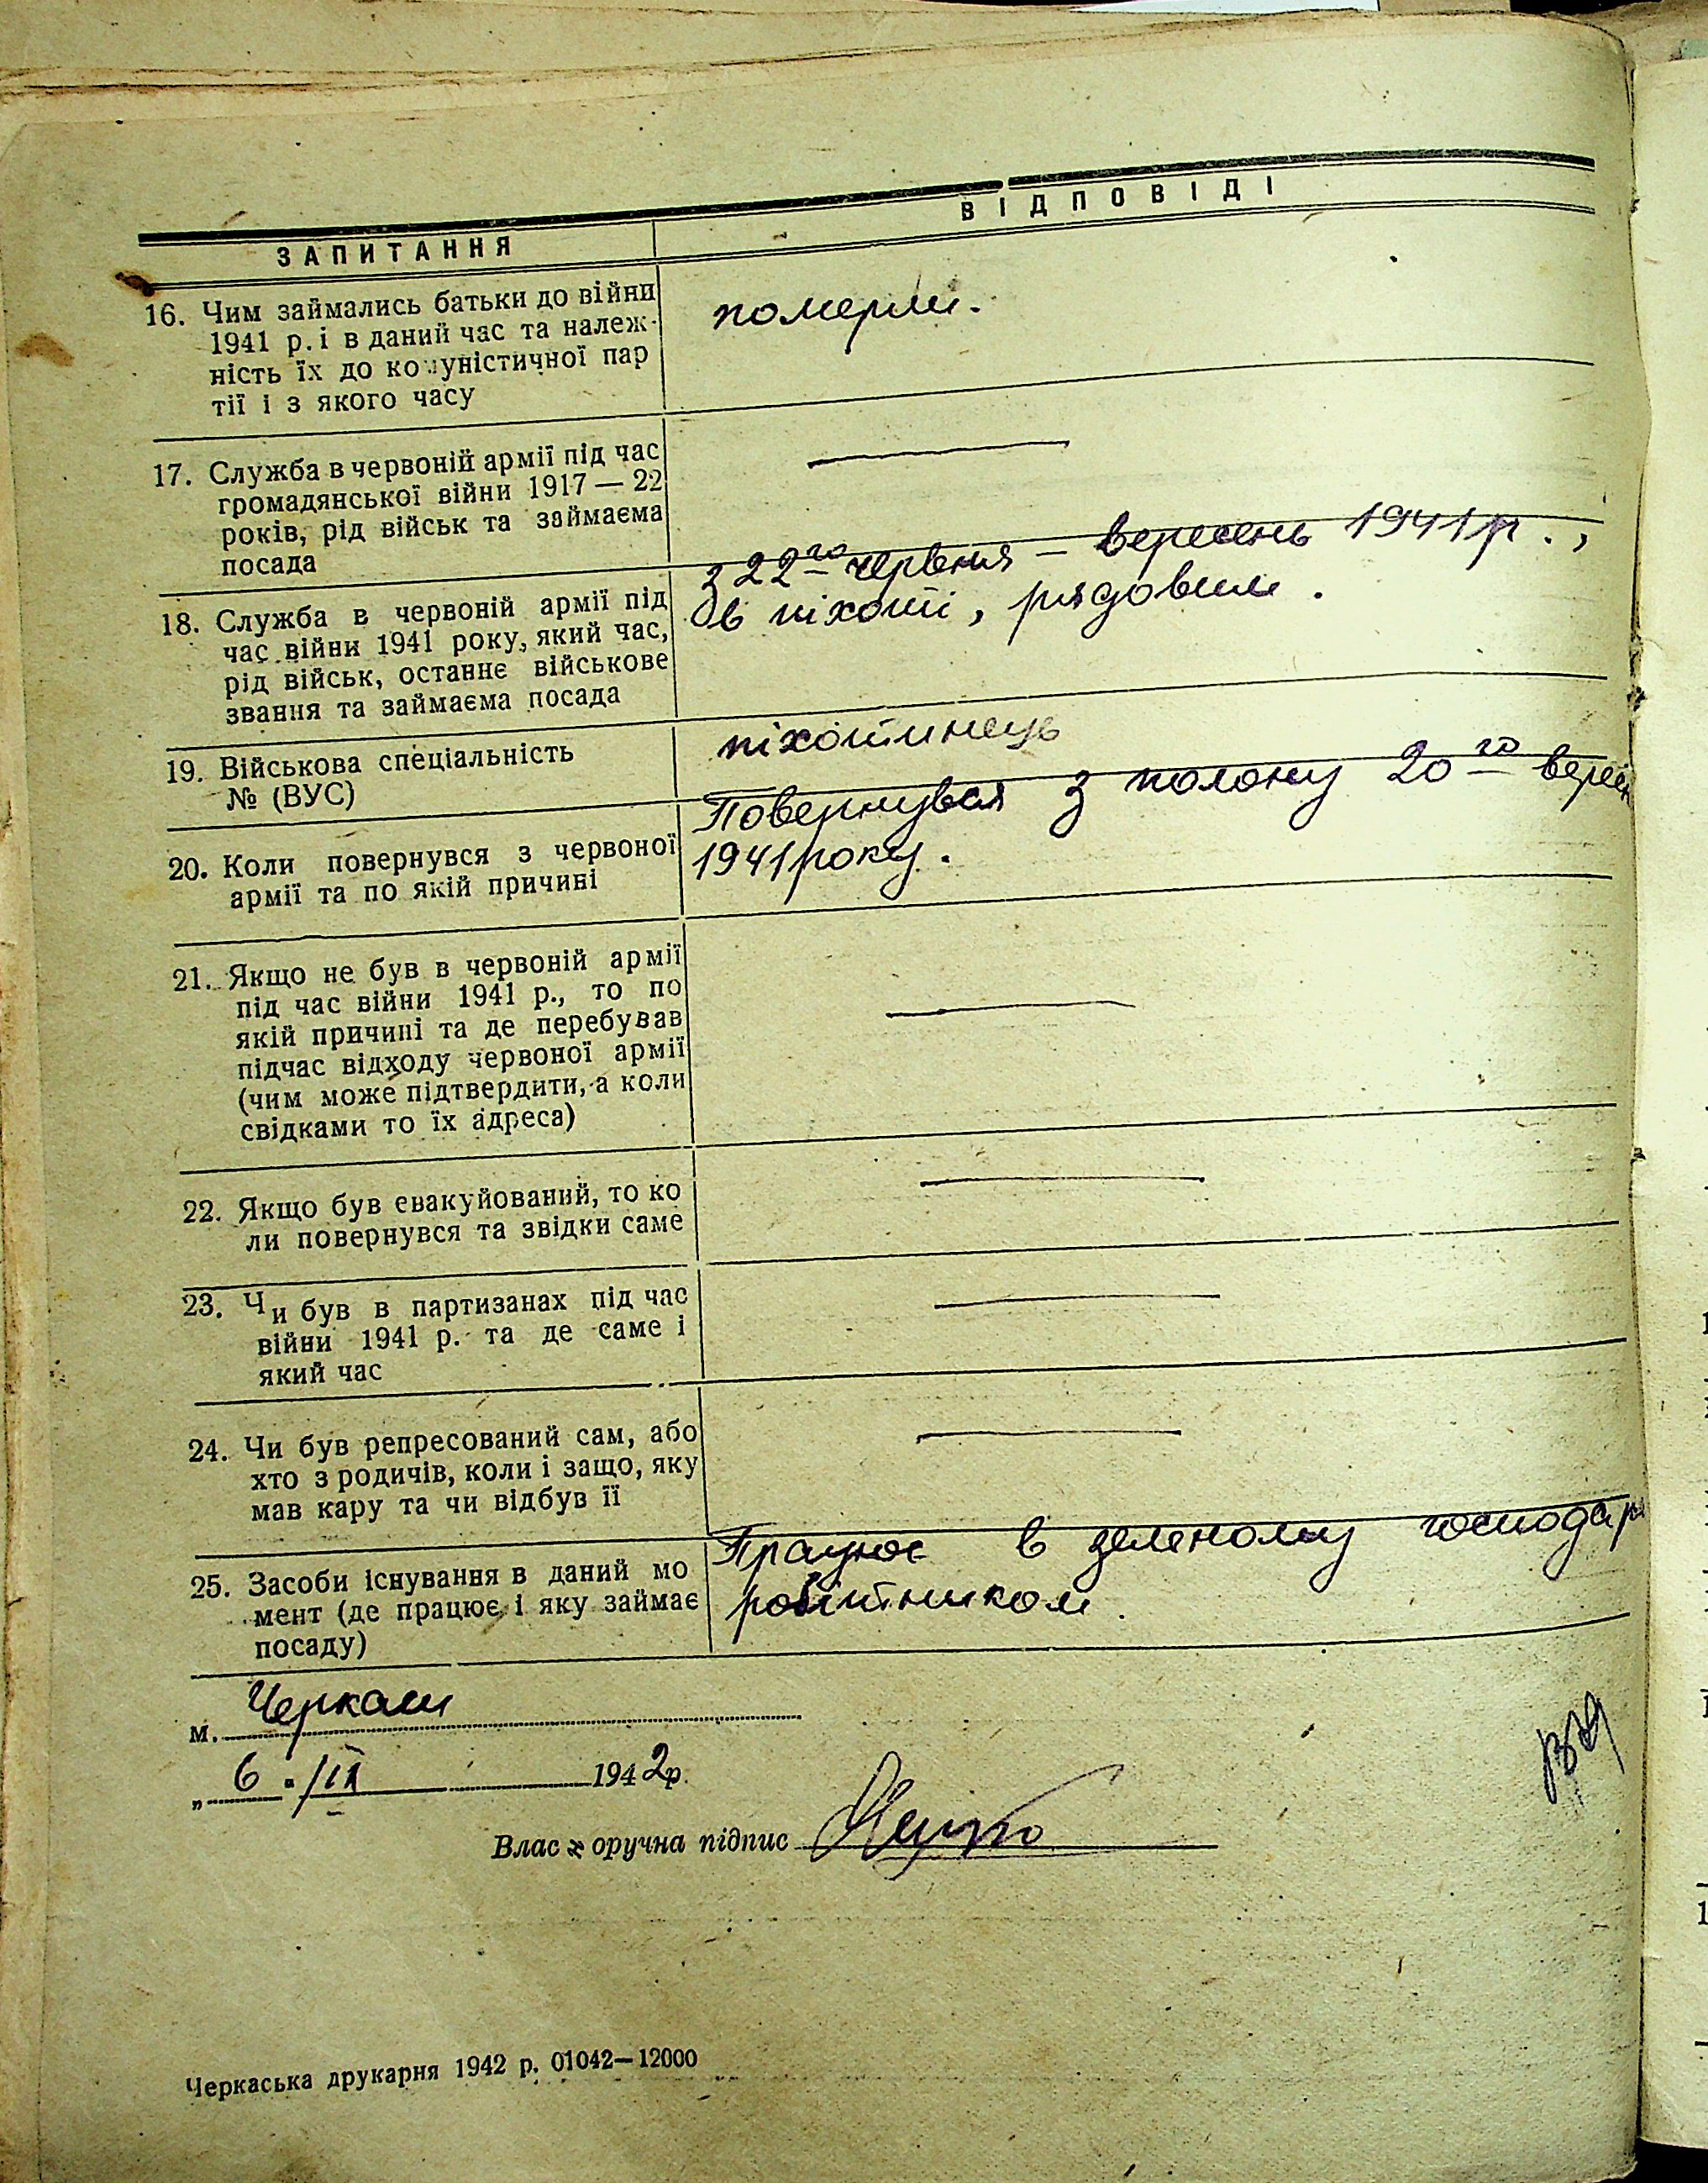 ЗАПИТАННЯ
ВІДПОВІДІ
16. Чим займались батьки до війни
1941 р. і в даний час та належ-
ність їх до комуністичної пар
тії і з якого часу
померли.
17. Служба в червоній армії під час
громадянської війни 1917 — 22
років, рід військ та займаєма
посада
18. Служба в червоній армії під
час війни 1941 року, який час,
рід військ, останнє військове
звання та займаєма посада
з 22го червня – вересень 1941 р.,
в піхоті, рядовим.
19. Військова спеціальність
№ (ВУС)
піхотинець
20. Коли повернувся з червоної
армії та по якій причині
Повернувся з полону 20го
1941 року.
21. Якщо не був в червоній армії
під час війни 1941 р., то по
якій причині та де перебував
підчас відходу червоної армії
(чим може підтвердити, а коли
свідками то їх адреса)
22. Якщо був евакуйований, то ко
ли повернувся та звідки саме
23. Чи був в партизанах під час
війни 1941 р. та де саме і
який час
24. Чи був репресований сам, або
хто з родичів, коли і защо, яку
мав кару та чи відбув її
25. Засоби існування в даний мо
мент (де працює і яку займає
посаду)
Працює в зеленому
робітником
м. Черкаси
„ 6 . 1942р.
Влас оручна підпис
Черкаська друкарня 1942 р. 01042—12000